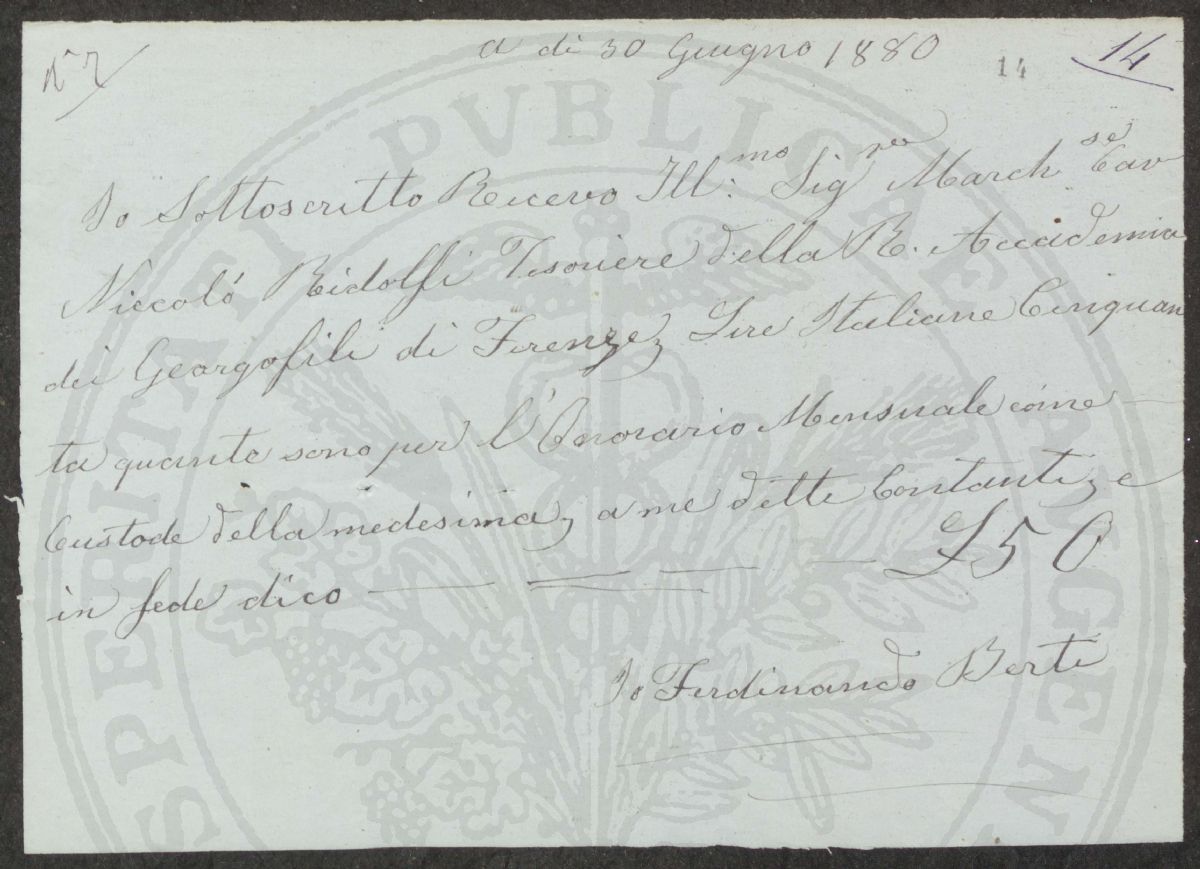 N° 7
a di 30 Giugno 1880
14
14
Io Sottoscritto Ricevo Ill:mo Sigre Marchse Cav
Niccoló Ridolfi Tesoriere della R. Accademia
dei Geargofili di Firenze, Lire Italiane Cinquan
ta quante sono per l'Onorario Mensuale come
Custode della medesima, a me dette Contanti, e
in fede dico — — — — £50
Io Ferdinando Berti
PROSPERITATI PVBLICAE AVGEN